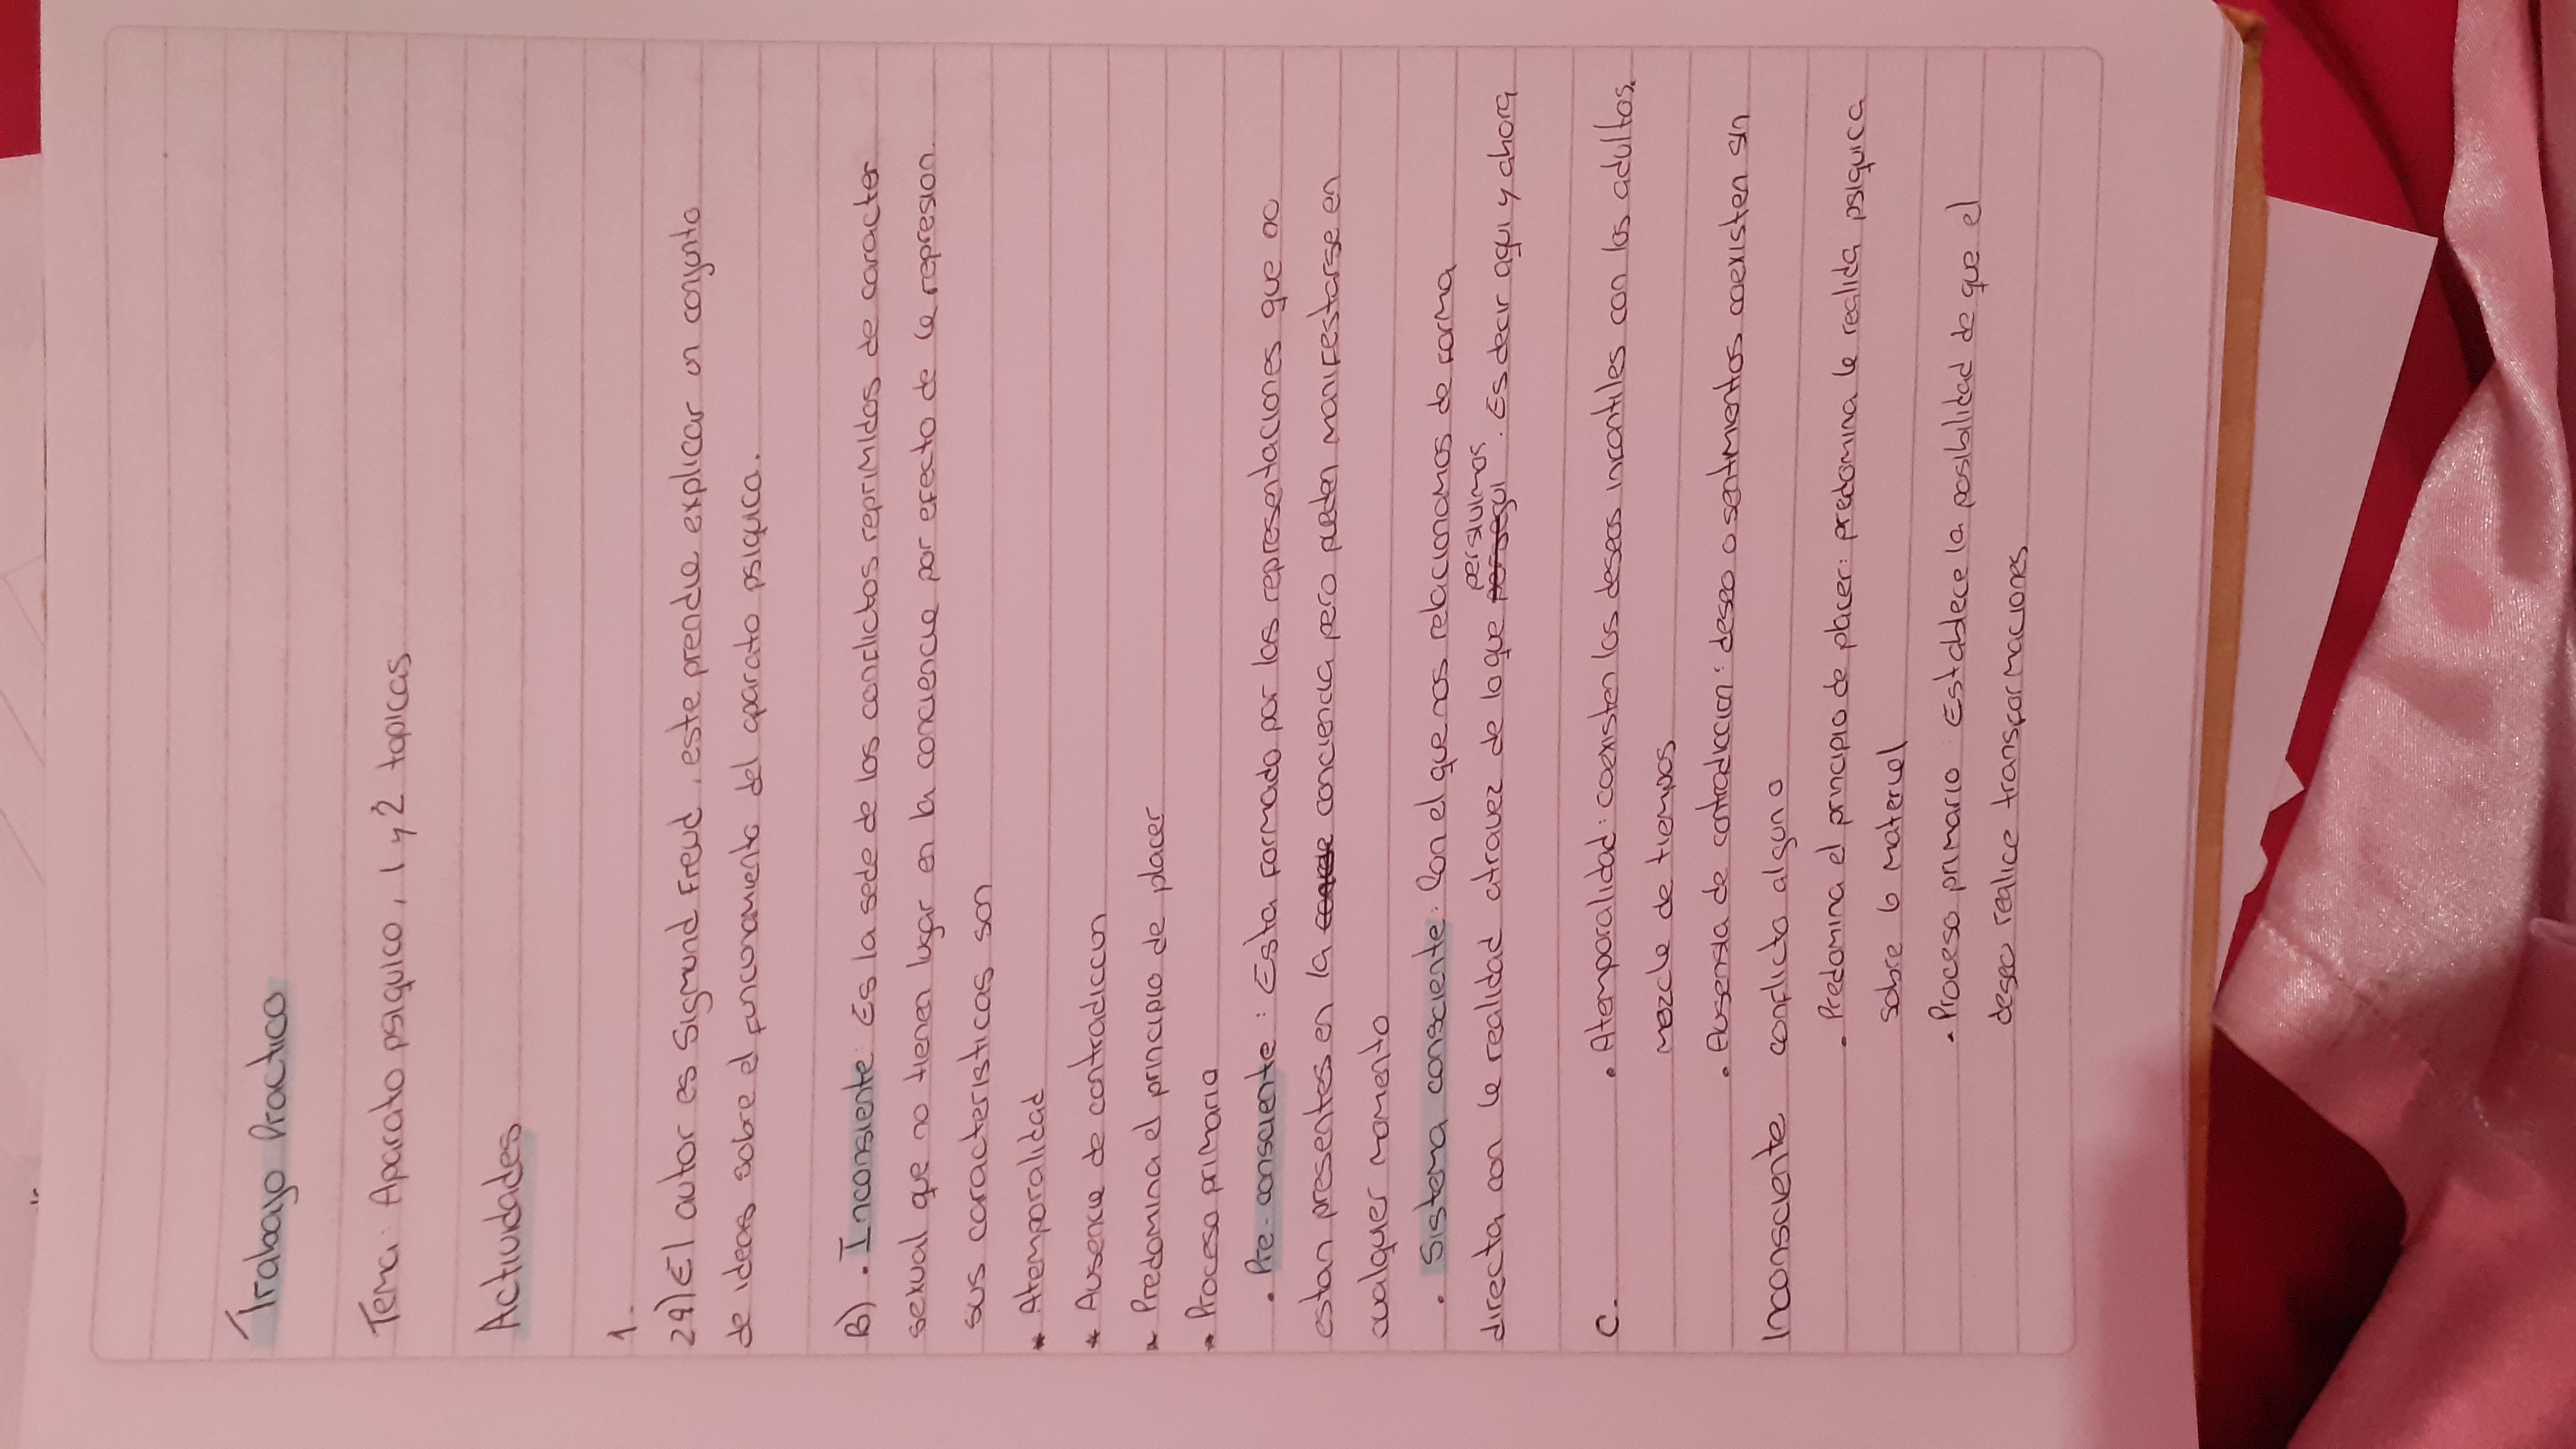 Trabajo Practico
Tema: Aparato psiquico, 1 y 2 topicas
Actividades
1-
2a) El autor es Sigmund Freud, este prendie explicar un conjunto
de ideas sobre el funconamiento del aparato psiquico.
B) . Inconsiente: Es la sede de los conflictos reprimidos de caracter
sexual que no tienen lugar en la conciencia por efecto de la represion.
sus caracteristicas son
* Atemporalidad
* Ausencia de contradiccion
* Predomina el principio de placer
* Proceso primario
. Pre-consciente: Esta formado por las representaciones que no
estan presentes en la conciencia pero pueden manifestarse en
cualquier momento
. Sistema consciente: Con el que nos relacionamos de forma
persivimos
directa con la realidad atravez de lo que persegui. Es decir aqui y ahora
C. . Atemporalidad: coexisten los deseos infantiles con los adultos.
mezcla de tiempos
. Ausensia de contradiccion: deseo o sentimientos coexisten sin
Inconsciente conflicto alguno
. Predomina el principio de placer: predomina la realida psiquica
sobre lo material
. Proceso primario Establece la posibilidad de que el
deseo realice transformaciones